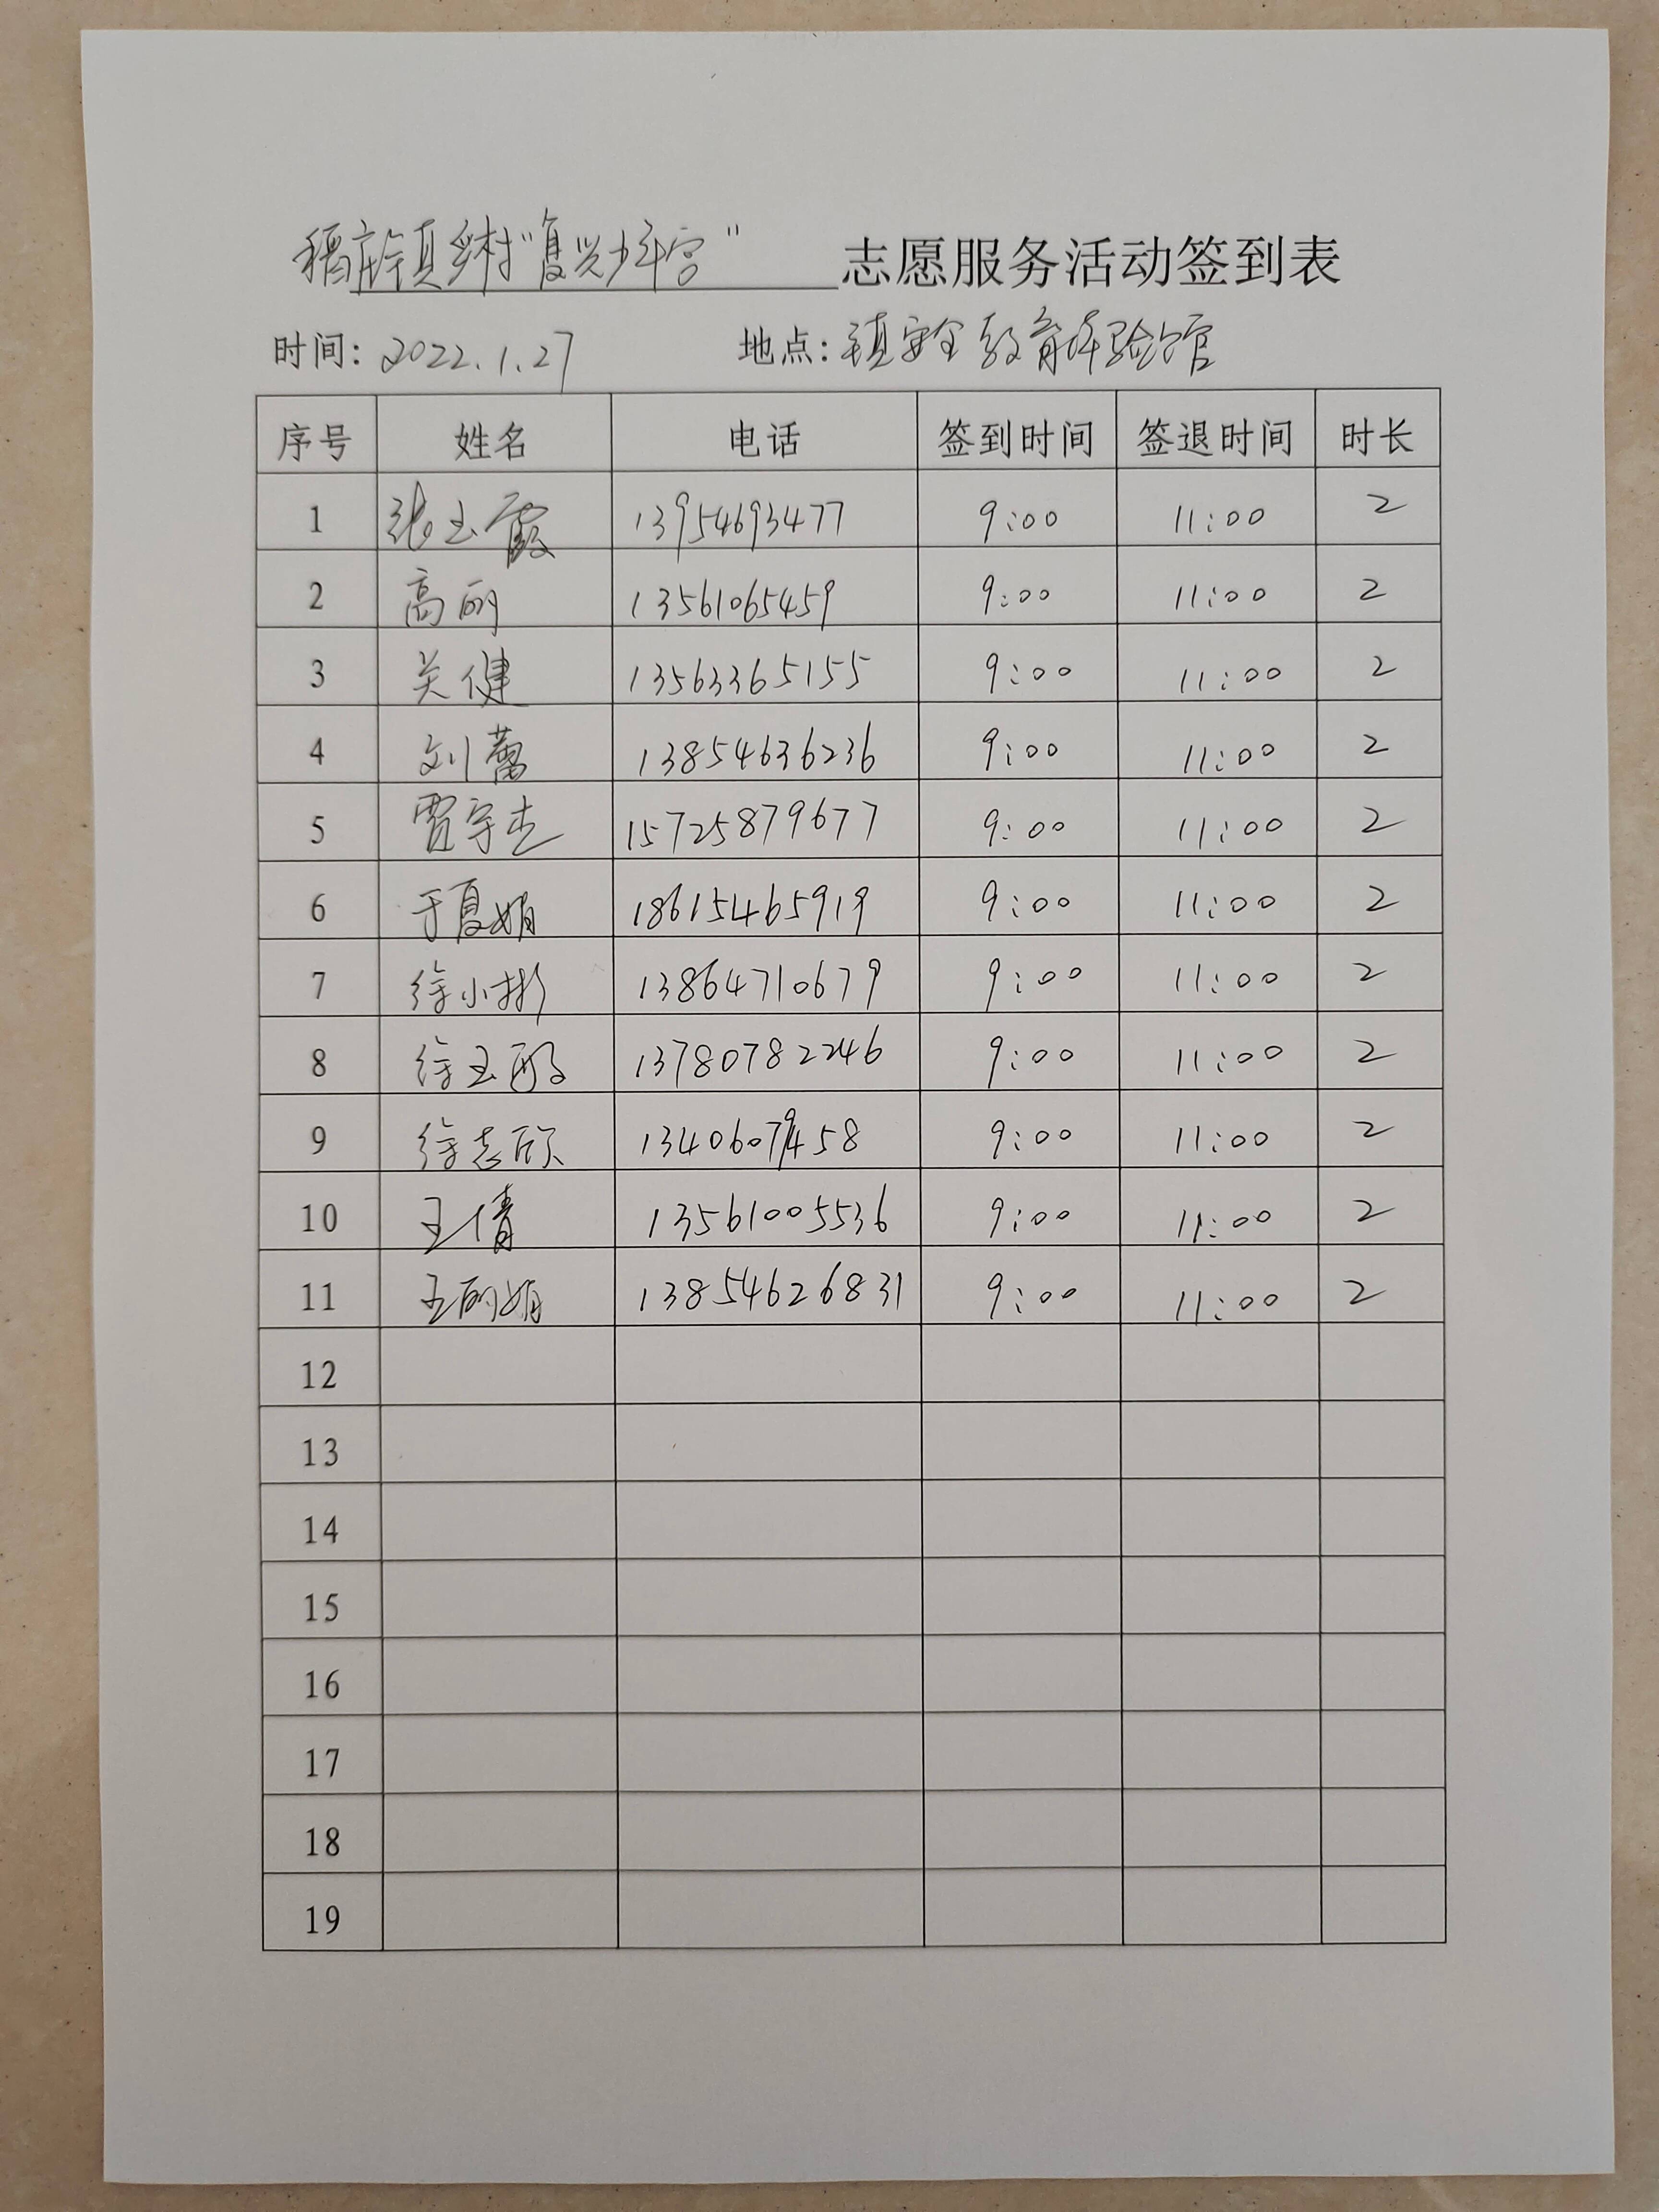 稻庄镇乡村"复兴少年宫" 志愿服务活动签到表
时间: 2022.1.27 地点: 镇安全教育体验馆
序号 姓名 电话 签到时间 签退时间 时长
1 张玉霞 13954693477 9:00 11:00 2
2 高丽 13561065459 9:00 11:00 2
3 关健 13563365155 9:00 11:00 2
4 刘蕾 13854636236 9:00 11:00 2
5 贾宇杰 15725879677 9:00 11:00 2
6 于夏娟 18615465919 9:00 11:00 2
7 徐小彬 13864710679 9:00 11:00 2
8 徐玉 13780782246 9:00 11:00 2
9 徐志欣 13406079458 9:00 11:00 2
10 王倩 13561005536 9:00 11:00 2
11 王丽娟 13854626831 9:00 11:00 2
12
13
14
15
16
17
18
19